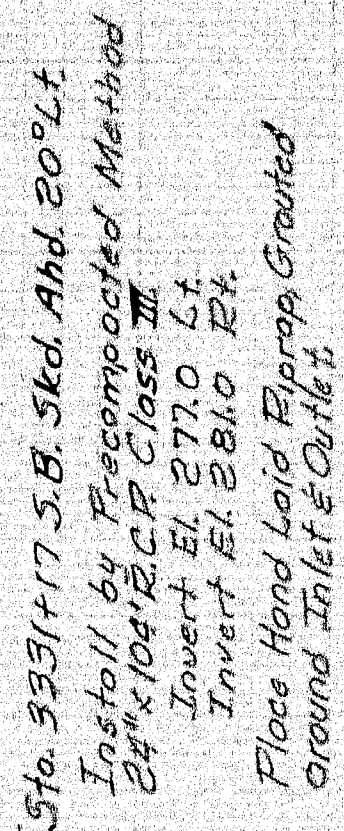 Sta. 3331+17 S.B. Skd. Ahd. 20° Lt.
Install by Precompacted Method
24" x 106' R.C.P. Class III
Invert El. 277.0 Lt.
Invert El. 281.0 Rt.
Place Hand Laid Riprap, Grouted
around Inlet & Outlet.